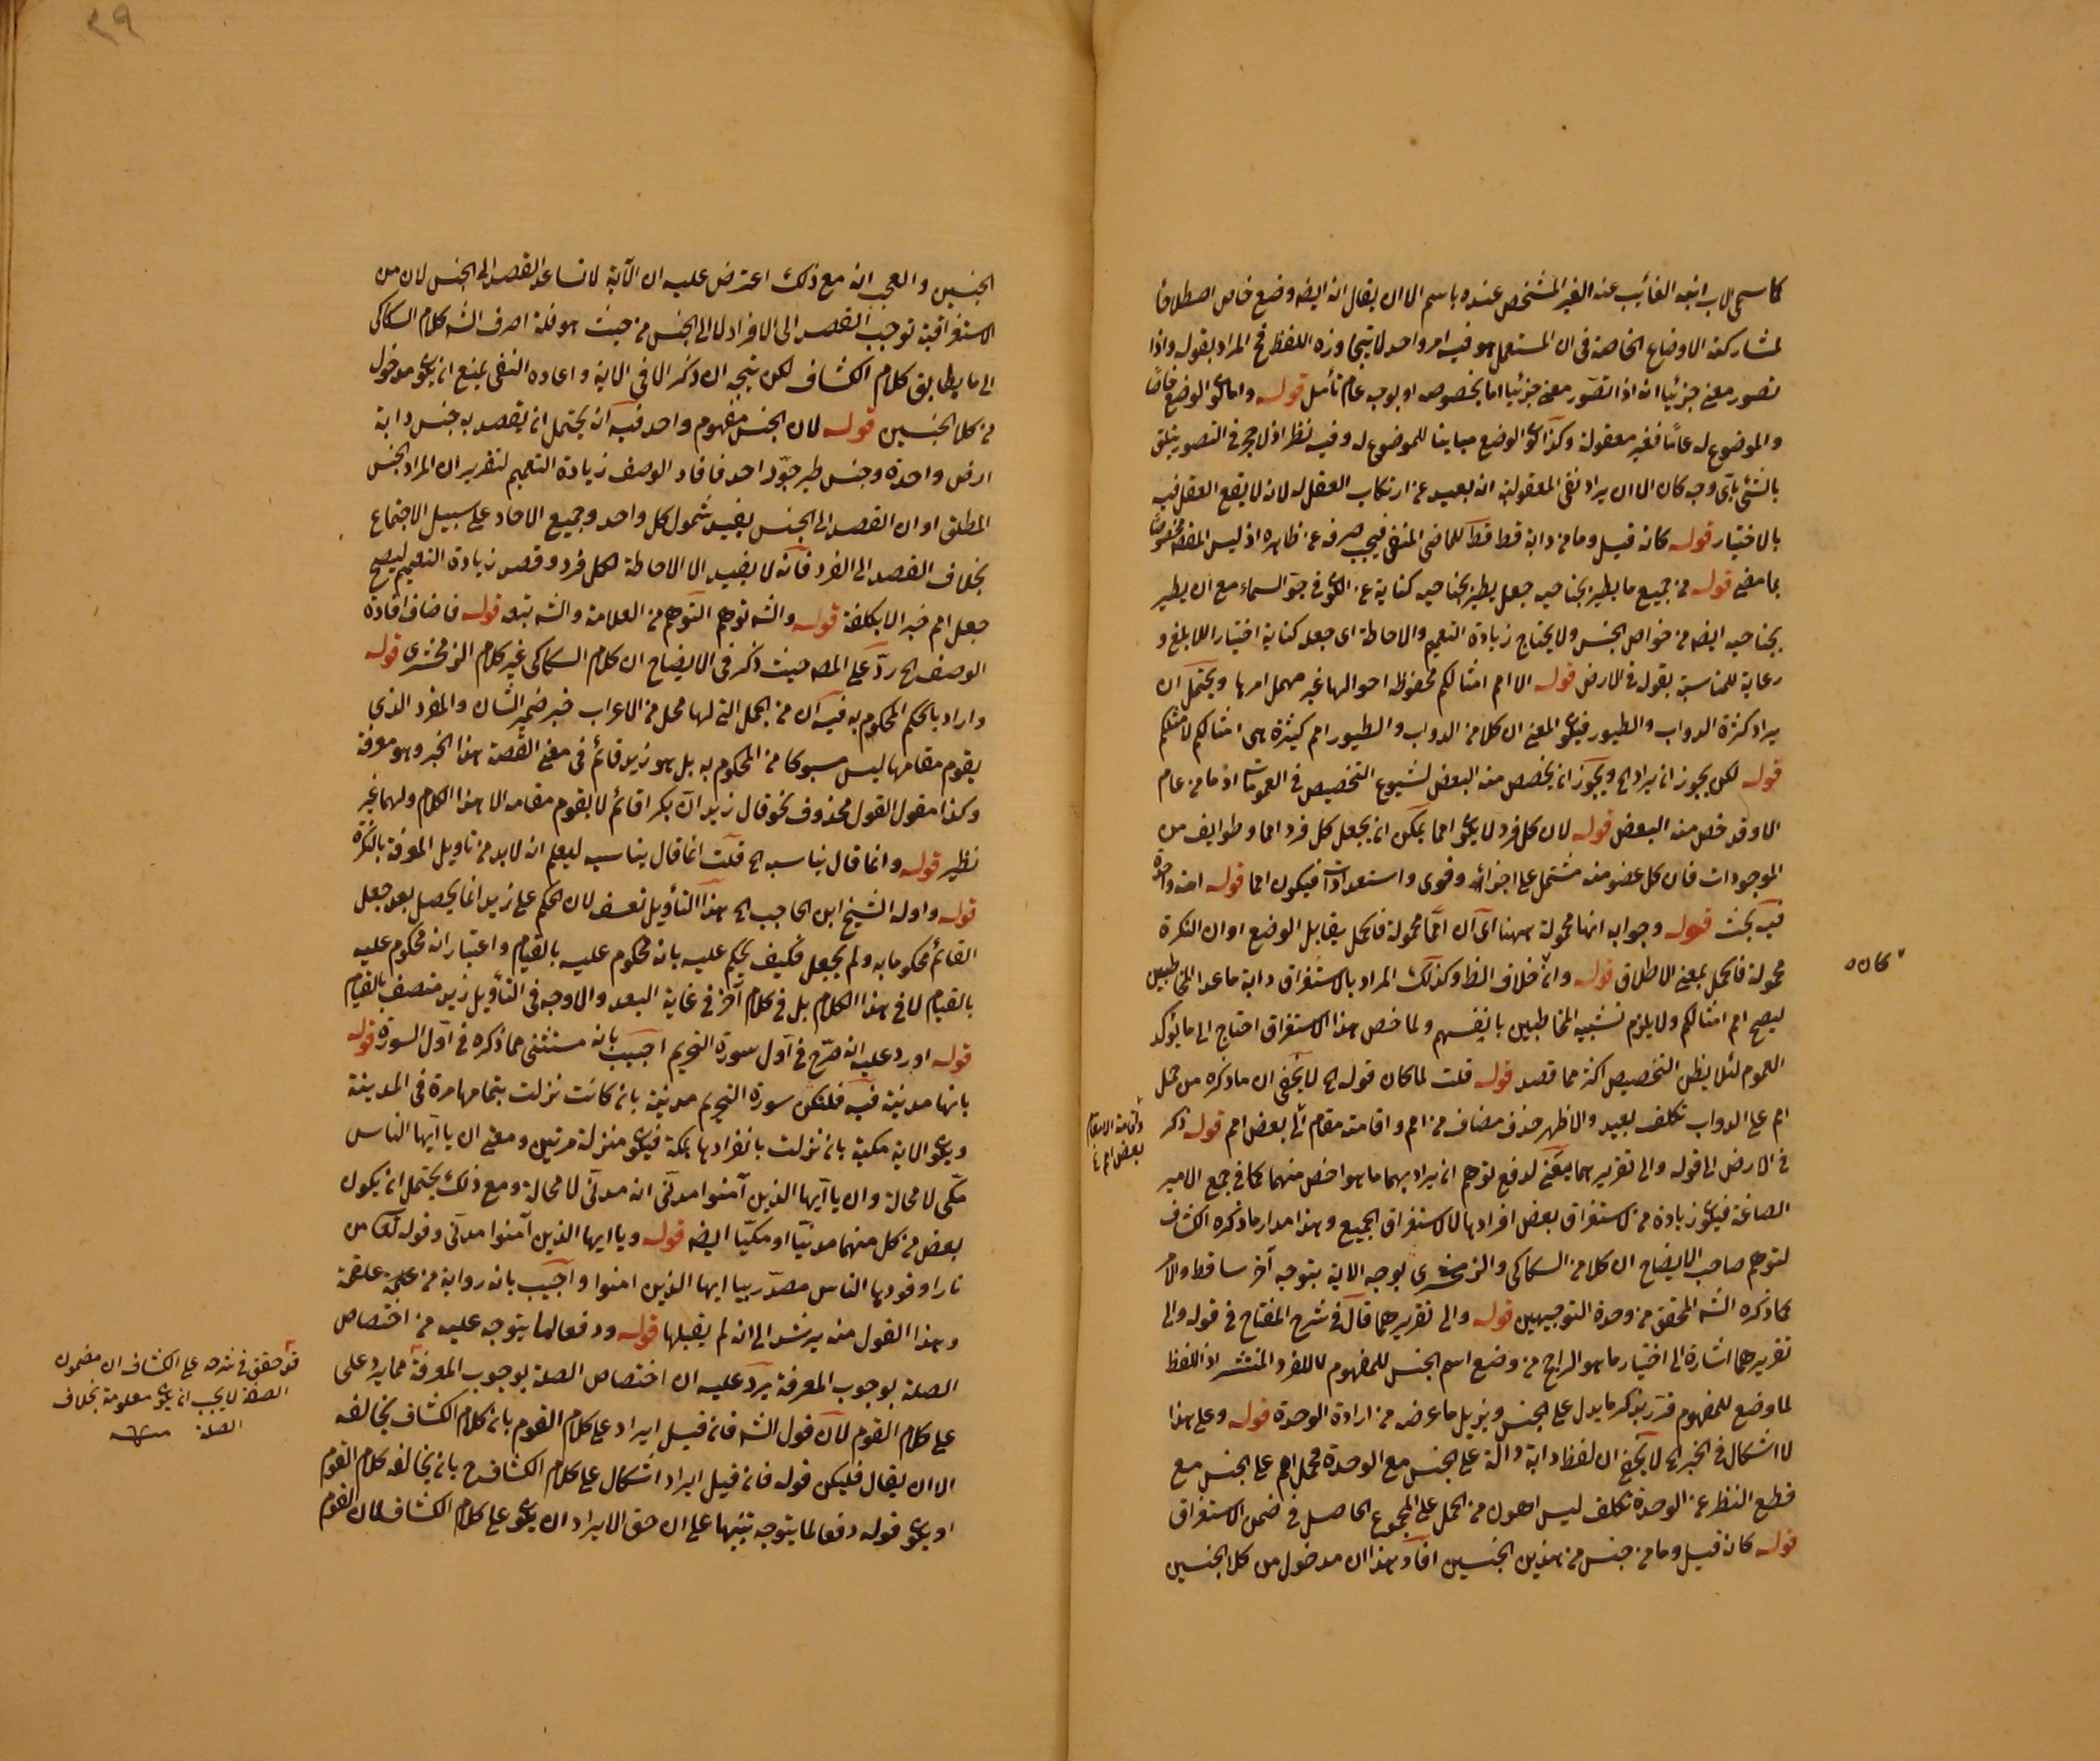 كما سمى الاب ابنه الغائب عنه الغير المشخص عنده باسم الا ان يقال انه ايضه وضع خاص اصطلاحا
لمشاركته الاوضاع الخاصة فى ان المستعمل هو فيه امر واحد لا يتجاوزه اللفظ فح المراد بقوله واذا
تصور معنى جزئيا انه اذا تصور معنى جزئيا اما بخصوصه او بوجه عام تأمل قوله واما كون الوضع خاصا
والموضوع له عاما فغير معقولة وكذا كون الوضع مباينا للموضوع له وفيه نظر اذ لا حجر فى التصور يتعلق
بالشئ بأى وجه كان الا ان يراد نفى المعقولية انه بعيد عن ارتكاب العقل له لانه لا يقع العقل فيه
بالاختيار قوله كانه قيل وما من دابة قط قط للماضى المنفى فيجب صرفه عن ظاهره اذ ليس المقصه مخصوصا
بما مضى قوله من جميع ما يطير بجناحيه جعل يطير بجناحيه كناية عن الكون فى جو السماء مع ان يطير
بجناحيه ايضه من خواص الجنس ولا يحتاج زيادة التعميم والاحاطة اى جعله كناية اختيار اللابلغ و
رعاية للمناسبة بقوله فى الارض قوله الا امم امثالكم محفوظة احوالها غير مهمل امرها ويحتمل ان
يراد كثرة الدواب والطيور فيكون المعنى ان كلا من الدواب والطيور امم كثيرة هى امثالكم لا مثلكم
قوله لكن يجوز ان يراد الخ ويجوز ان يخصص منه البعض لشيوع التخصيص فى العمومات اذ ما من عام
الا وقد خص منه البعض قوله لان كل فرد لا يكون امما يمكن ان يجعل كل فرد امما وطوايف من
الموجودات فان كل عضو منه مشتمل على اجزائه وقوى واستعدادات فيكون امما قوله امة واحدة
فيه بحث قوله وجوابه انها محمولة ههنا اى ان امما محمولة فالحمل يقابل الوضع او ان النكرة
كان
محمولة فالحمل بمعنى الاطلاق قوله وانه خلاف الظ وكذلك المراد بالاستغراق دابة ما عدا المخاطبين
ليصح امم امثالكم ولا يلزم تشبيه المخاطبين بانفسهم ولما خص هذا الاستغراق احتاج الى ما يؤكد
العموم لئلا يظن التخصيص اكثر مما قصد قوله قلت لما كان قوله الخ لا يخفى ان ما ذكره من حمل
امم على الدواب تكلف بعيد والاظهر حذف مضاف من امم واقامته مقامه اى بعض امم قوله ذكر
فى الارض الى قوله والى تقريرهما يعنى لدفع توهم ان يراد بهما ما هو اخص منهما كما فى جمع الامير
الصاغة فيكون زيادة من الاستغراق بعض افرادها لا الاستغراق الجميع وهذا مدار ما ذكره الكشاف
لتوهم صاحب الايضاح ان كلا من السكاكى والزمخشرى يوجه الاية بتوجه آخر ساقط والامر
كما ذكره الشه المحقق من وحدة التوجيهين قوله والى تقريرهما قال فى شرح المفتاح فى قوله والى
تقريرهما اشارة الى اختيار ما هو الراجح من وضع اسم الجنس للمفهوم لا للفرد المنتشر اذ اللفظ
لما وضع للمفهوم قرر بذكر ما يدل على الجنس ويزيل ما عرضه من ارادة الوحدة قوله وعلى هذا
لا اشكال فى الخبر الخ لا يخفى ان لفظ دابة دالة على الجنس مع الوحدة فحمل امم على الجنس مع
قطع النظر عن الوحدة تكلف ليس اهون من الحمل على المجموع الحاصل فى ضمن الاستغراق
قوله كانه قيل وما من جنس من هذين الجنسين افاد هذا ان مدخول من كلا الجنسين
الجنسين والعجب انه مع ذلك اعترض عليه ان الآية لا تساعد القصد الى الجنس لان من
الاستغراقية توجب القصد الى الافراد لا الى الجنس من حيث هو فلذا صرف الشه كلام السكاكى
الى ما يطابق كلام الكشاف لكن يتجه ان ذكر الا فى الاية واعاده النفى يمنع ان يكون مدخول
من كلا الجنسين قوله لان الجنس مفهوم واحد فيه انه يحتمل ان يقصد به جنس دابة
ارض واحدة وجنس طير جو واحد فافاد الوصف زيادة التعميم لتقرير ان المراد الجنس
المطلق او ان القصد الى الجنس يفيد شمول كل واحد وجميع الاحاد على سبيل الاجتماع
بخلاف القصد الى الفرد فانه لا يفيد الا الاحاطة لكل فرد وقصد زيادة التعميم ليصح
جعل امم خبر الا بكلفة قوله والشه توهم التوهم من العلامة والشه تبعه قوله فاضاف افادة
الوصف الخ رد على المصه حيث ذكر فى الايضاح ان كلام السكاكى غير كلام الزمخشرى قوله
واراد بالحكم المحكوم به فيه ان من الجمل التى لها محل من الاعراب خبر ضمير الشان والمفرد الذى
يقوم مقامها ليس مسبوكا من المحكوم به بل هو زيد قائم فى معنى القصة هذا الخبر وهو معرفة
وكذا مقول القول محذوف نحو قال زيد ان بكرا قائم لا يقوم مقامه الا هذا الكلام ولهما غير
نظير قوله وانما قال يناسبه الخ قلت انما قال يناسبه ليعلم انه لا بد من تاويل المعرفة بالنكرة
قوله واوله الشيخ ابن الحاجب الخ هذا التأويل تعسف لان الحكم على زيد انما يحصل بعد جعل
القائم محكوما به ولم يجعل فكيف يحكم عليه بانه محكوم عليه بالقيام واعتبار انه محكوم عليه
بالقيام لا فى هذا الكلام بل فى كلام آخر فى غاية البعد والاوجه فى التأويل زيد متصف بالقيام
قوله اورد عليه انه صرح فى اول سورة التحريم اجيب بانه مستثنى مما ذكره فى اول السورة قوله
بانها مدنية فيه فلتكن سورة التحريم مدنية بان كانت نزلت بتمامها مرة فى المدينة
ويكون الاية مكية بان نزلت بانفرادها بمكة فيكون منزلة مرتين ومعنى ان يا ايها الناس
مكى لا محالة وان يا ايها الذين آمنوا مدنى انه مدنى لا محالة ومع ذلك يحتمل ان يكون
بعض من كل منهما مدنيا او مكيا ايضه قوله ويا ايها الذين آمنوا مدنى وقوله تعالى من
نارا وقودها الناس مصدر بيا ايها الذين امنوا واجيب بانه رواية من علقمة
وهذا القول منه يرشد الى انه لم يقبلها قوله ودفعا لما يتوجه عليه من اختصاص
الصلة بوجوب المعرفة يرد عليه ان اختصاص الصلة بوجوب المعرفة مما يرد على
على كلام القوم لان قول الشه فان قيل ايراد على كلام القوم بان كلام الكشاف يخالفه
الا ان يقال فليكن قوله فان قيل ايراد اشكال على كلام الكشاف ح بانه يخالفه كلام القوم
او يكون قوله دفعا لما يتوجه تنبيها على ان حق الايراد ان يكون على كلام الكشاف لان القوم
واقامة الامقام
بعض امم
حقق فى شرحه على الكشاف ان مضمون
الصفة لا يجب ان يكون معلومة بخلاف
الصلة منه
٣٩